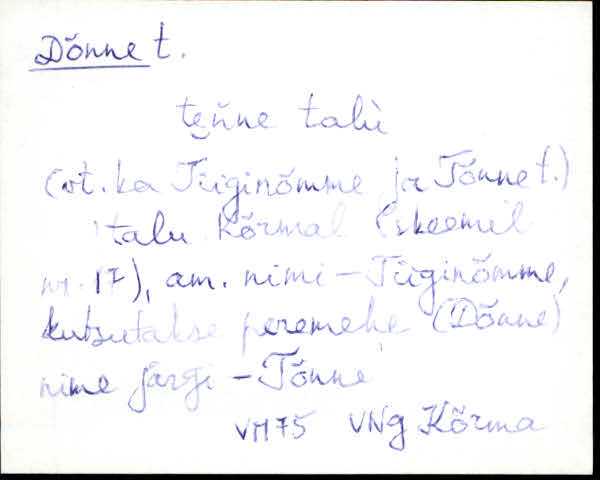 Dõnne t.
te̮ňne talù
(vt. ka Tiiginõmme ja Tõnne t.)
talu Kõrmal (skeemil
nr. 17), am. nimi – Tiiginõmme,
kutsutakse peremehe (Dõnne)
nime järgi – Tõnne
VM75 VNg Kõrma